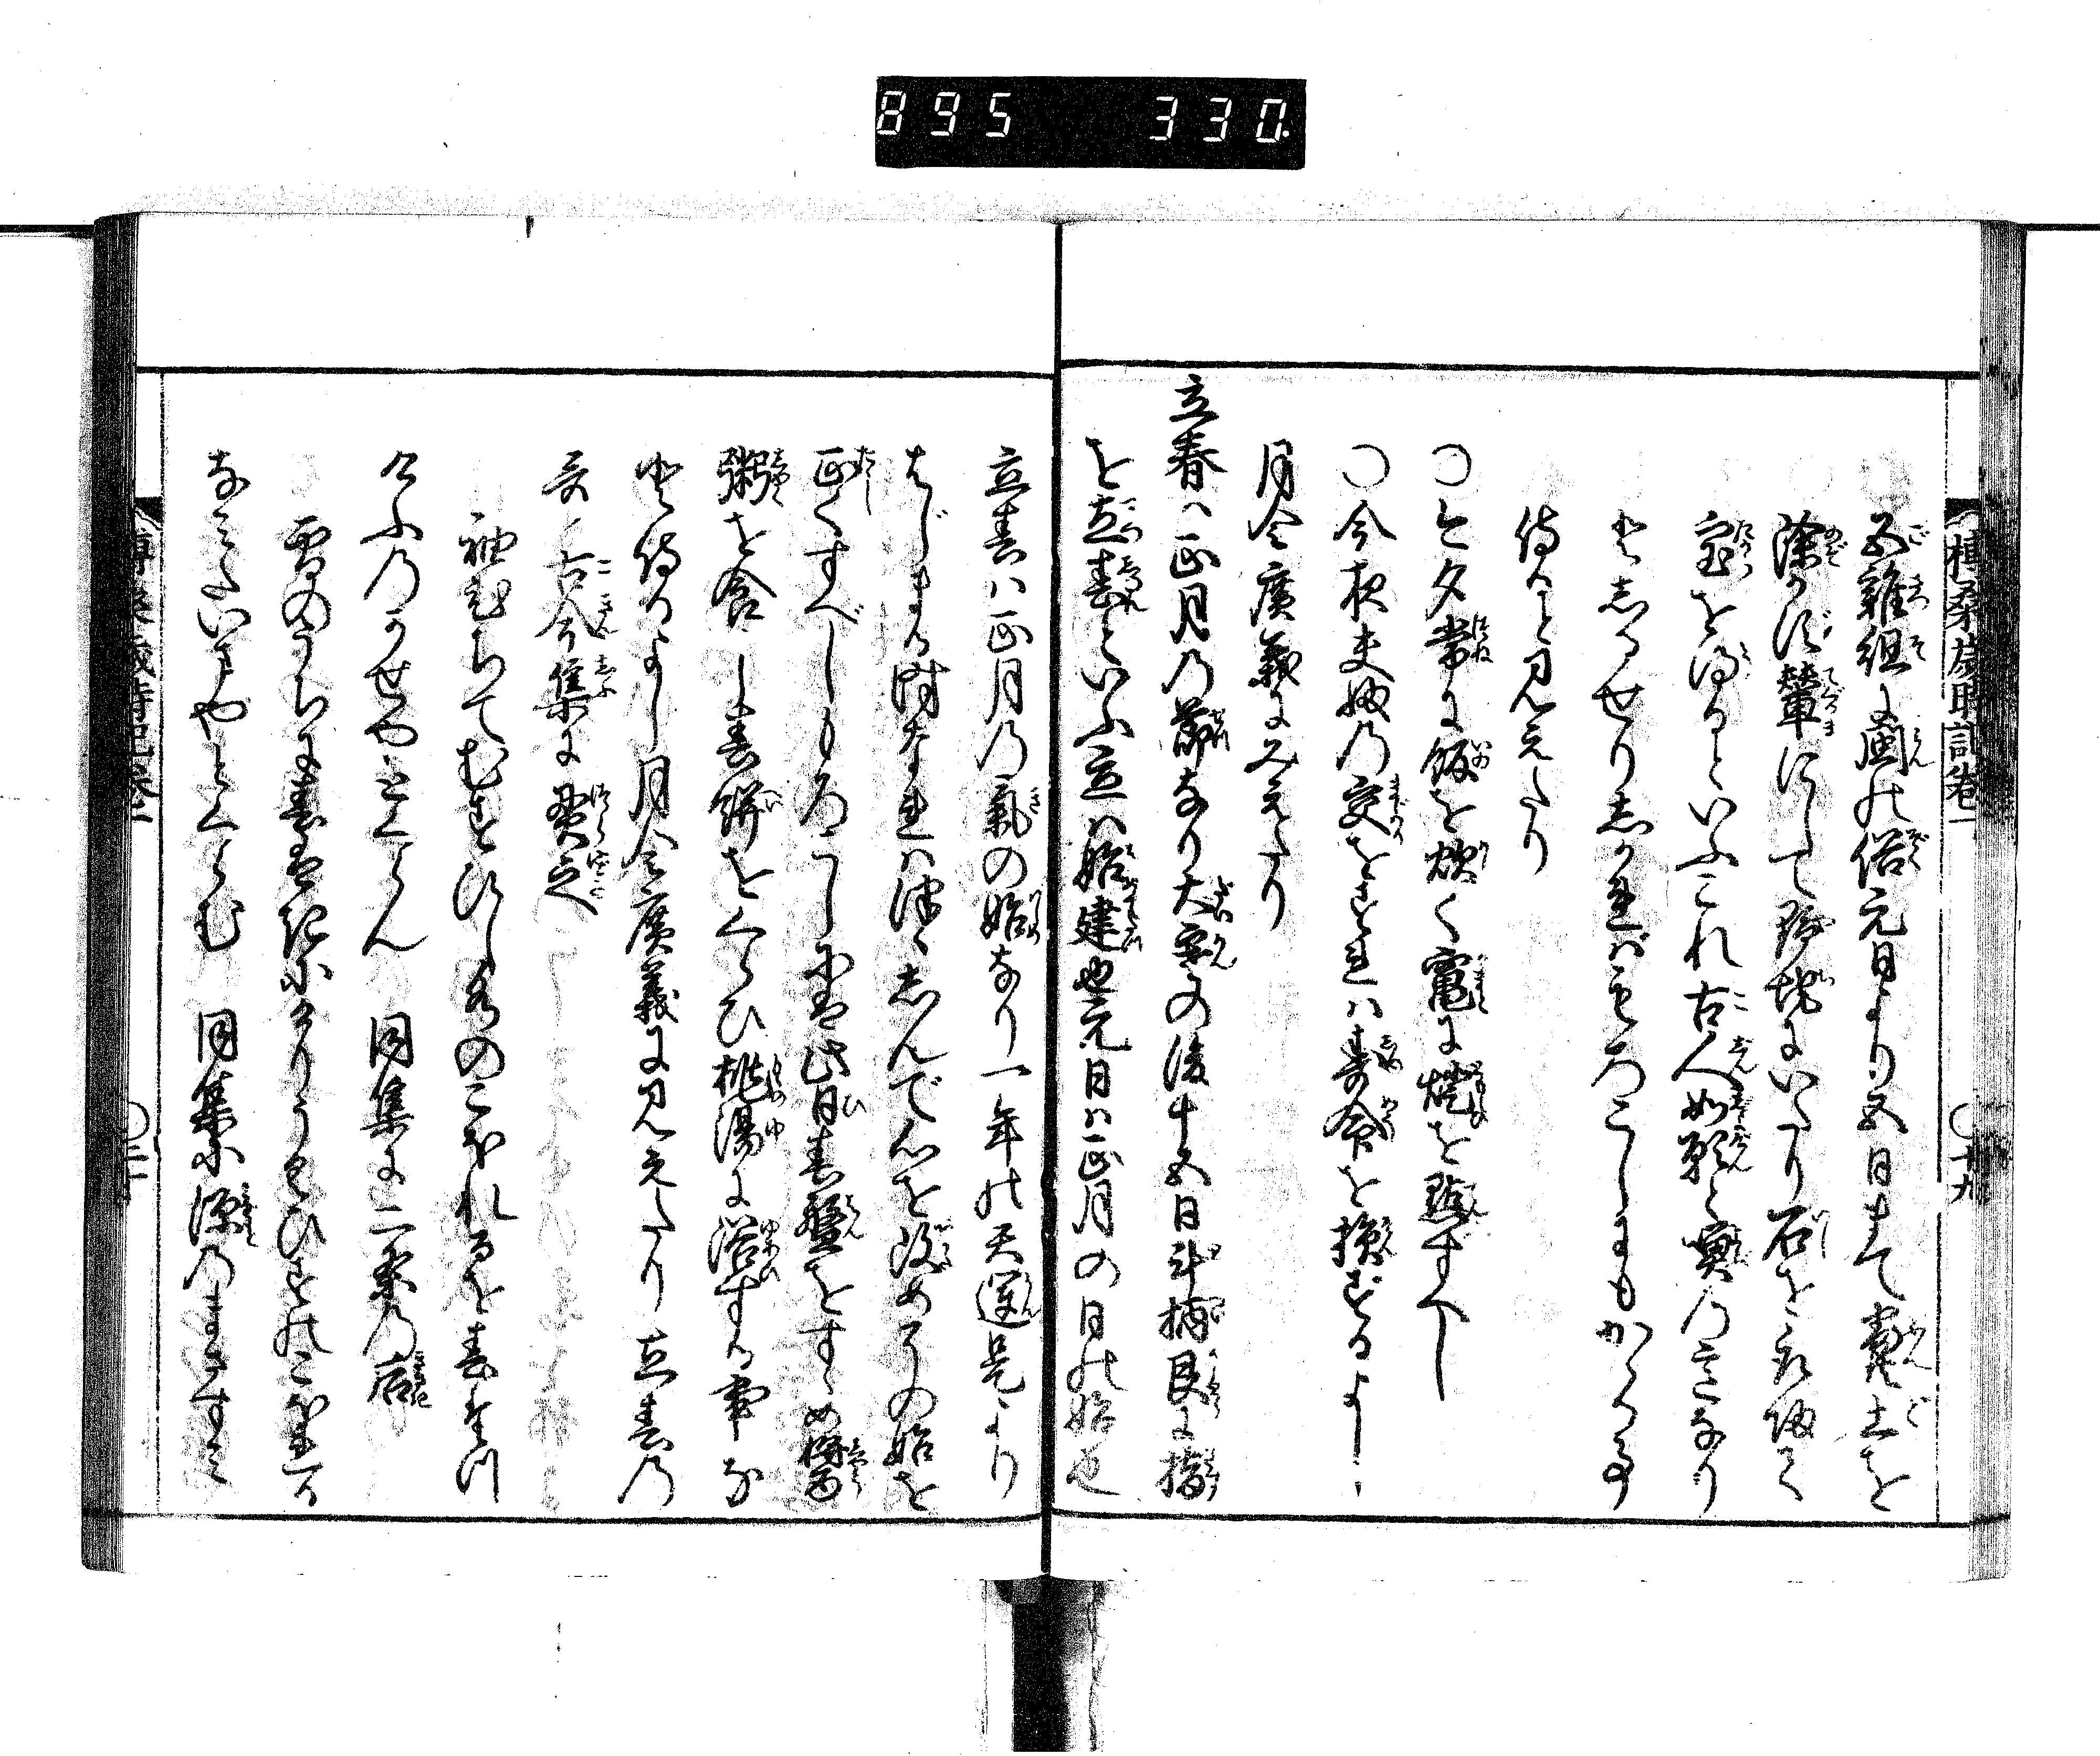 895 330.
榑桑歳時記巻一 〇十九
五雜組に閩の俗元日より五日まて糞土を
除かず輦にして野地にいたり石を取帰て
宝を得るといふこれ古人如願を喚の意なり
としるせりしかればもろこしにもかゝる事
侍ると見えたり
〇今夕常に飯を炊く竈に燈を點ずべし
〇今夜夫婦の交をすれは寿命を損ずるよし
月令廣義にみえたり
立春ハ正月の節なり大寒の後十五日斗柄艮に指
を立春といふ立ハ始建也元日ハ正月の日の始也
立春ハ正月の氣の始なり一年の天運是より
はじまる時なれハ謹しんで心を改めその始を
正くすべしもろこしにも此日春盤をすゝめ
粥を食し春餅をくらひ桃湯に浴する事な
と侍るよし月令廣義に見えたり立春の
哥く古今集に貫之
袖ひちてむすひし水のこほれるを春たつ
けふのかせやとくらん 同集に二条の后
雪のうちに春はきにけりうくひすのこほれる
なみたいまやとくらむ 同集に源のまさすみ